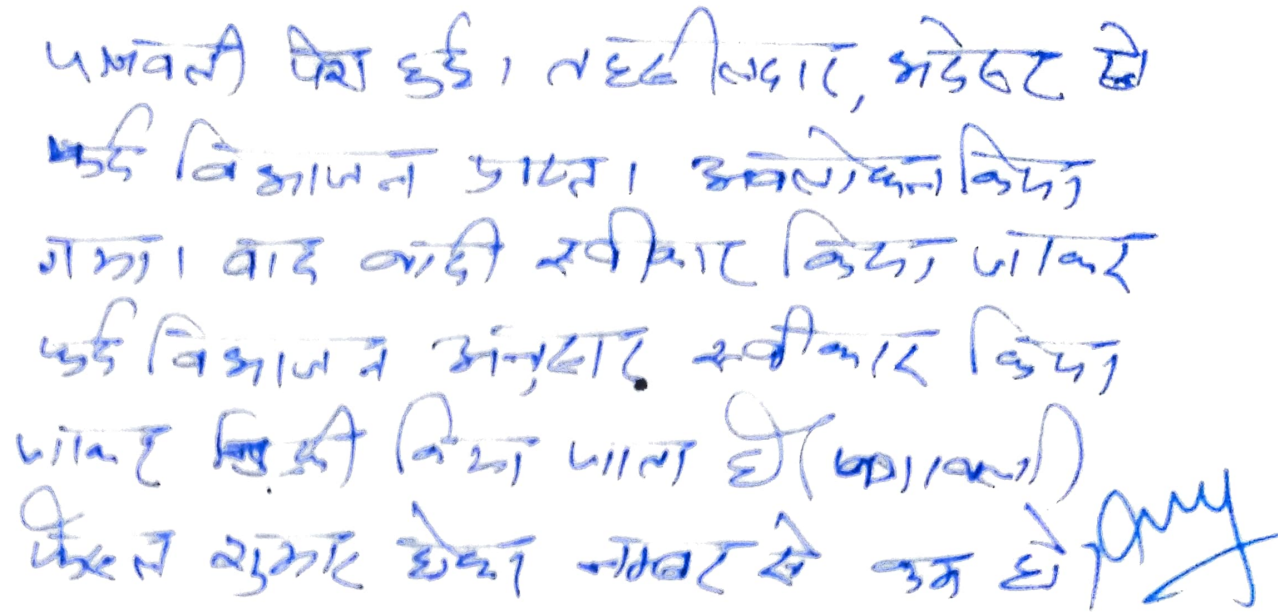 पत्रावली पेश हुई। तहसीलदार, भदेसर से
फर्द विभाजन प्राप्त। अवलोकन किया
गया। वाद वादी स्वीकार किया जाकर
फर्द विभाजन अनुसार स्वीकार किया
जाकर डिक्री किया जाता है। पत्रावली
फैसल शुमार होकर नम्बर से कम हो।